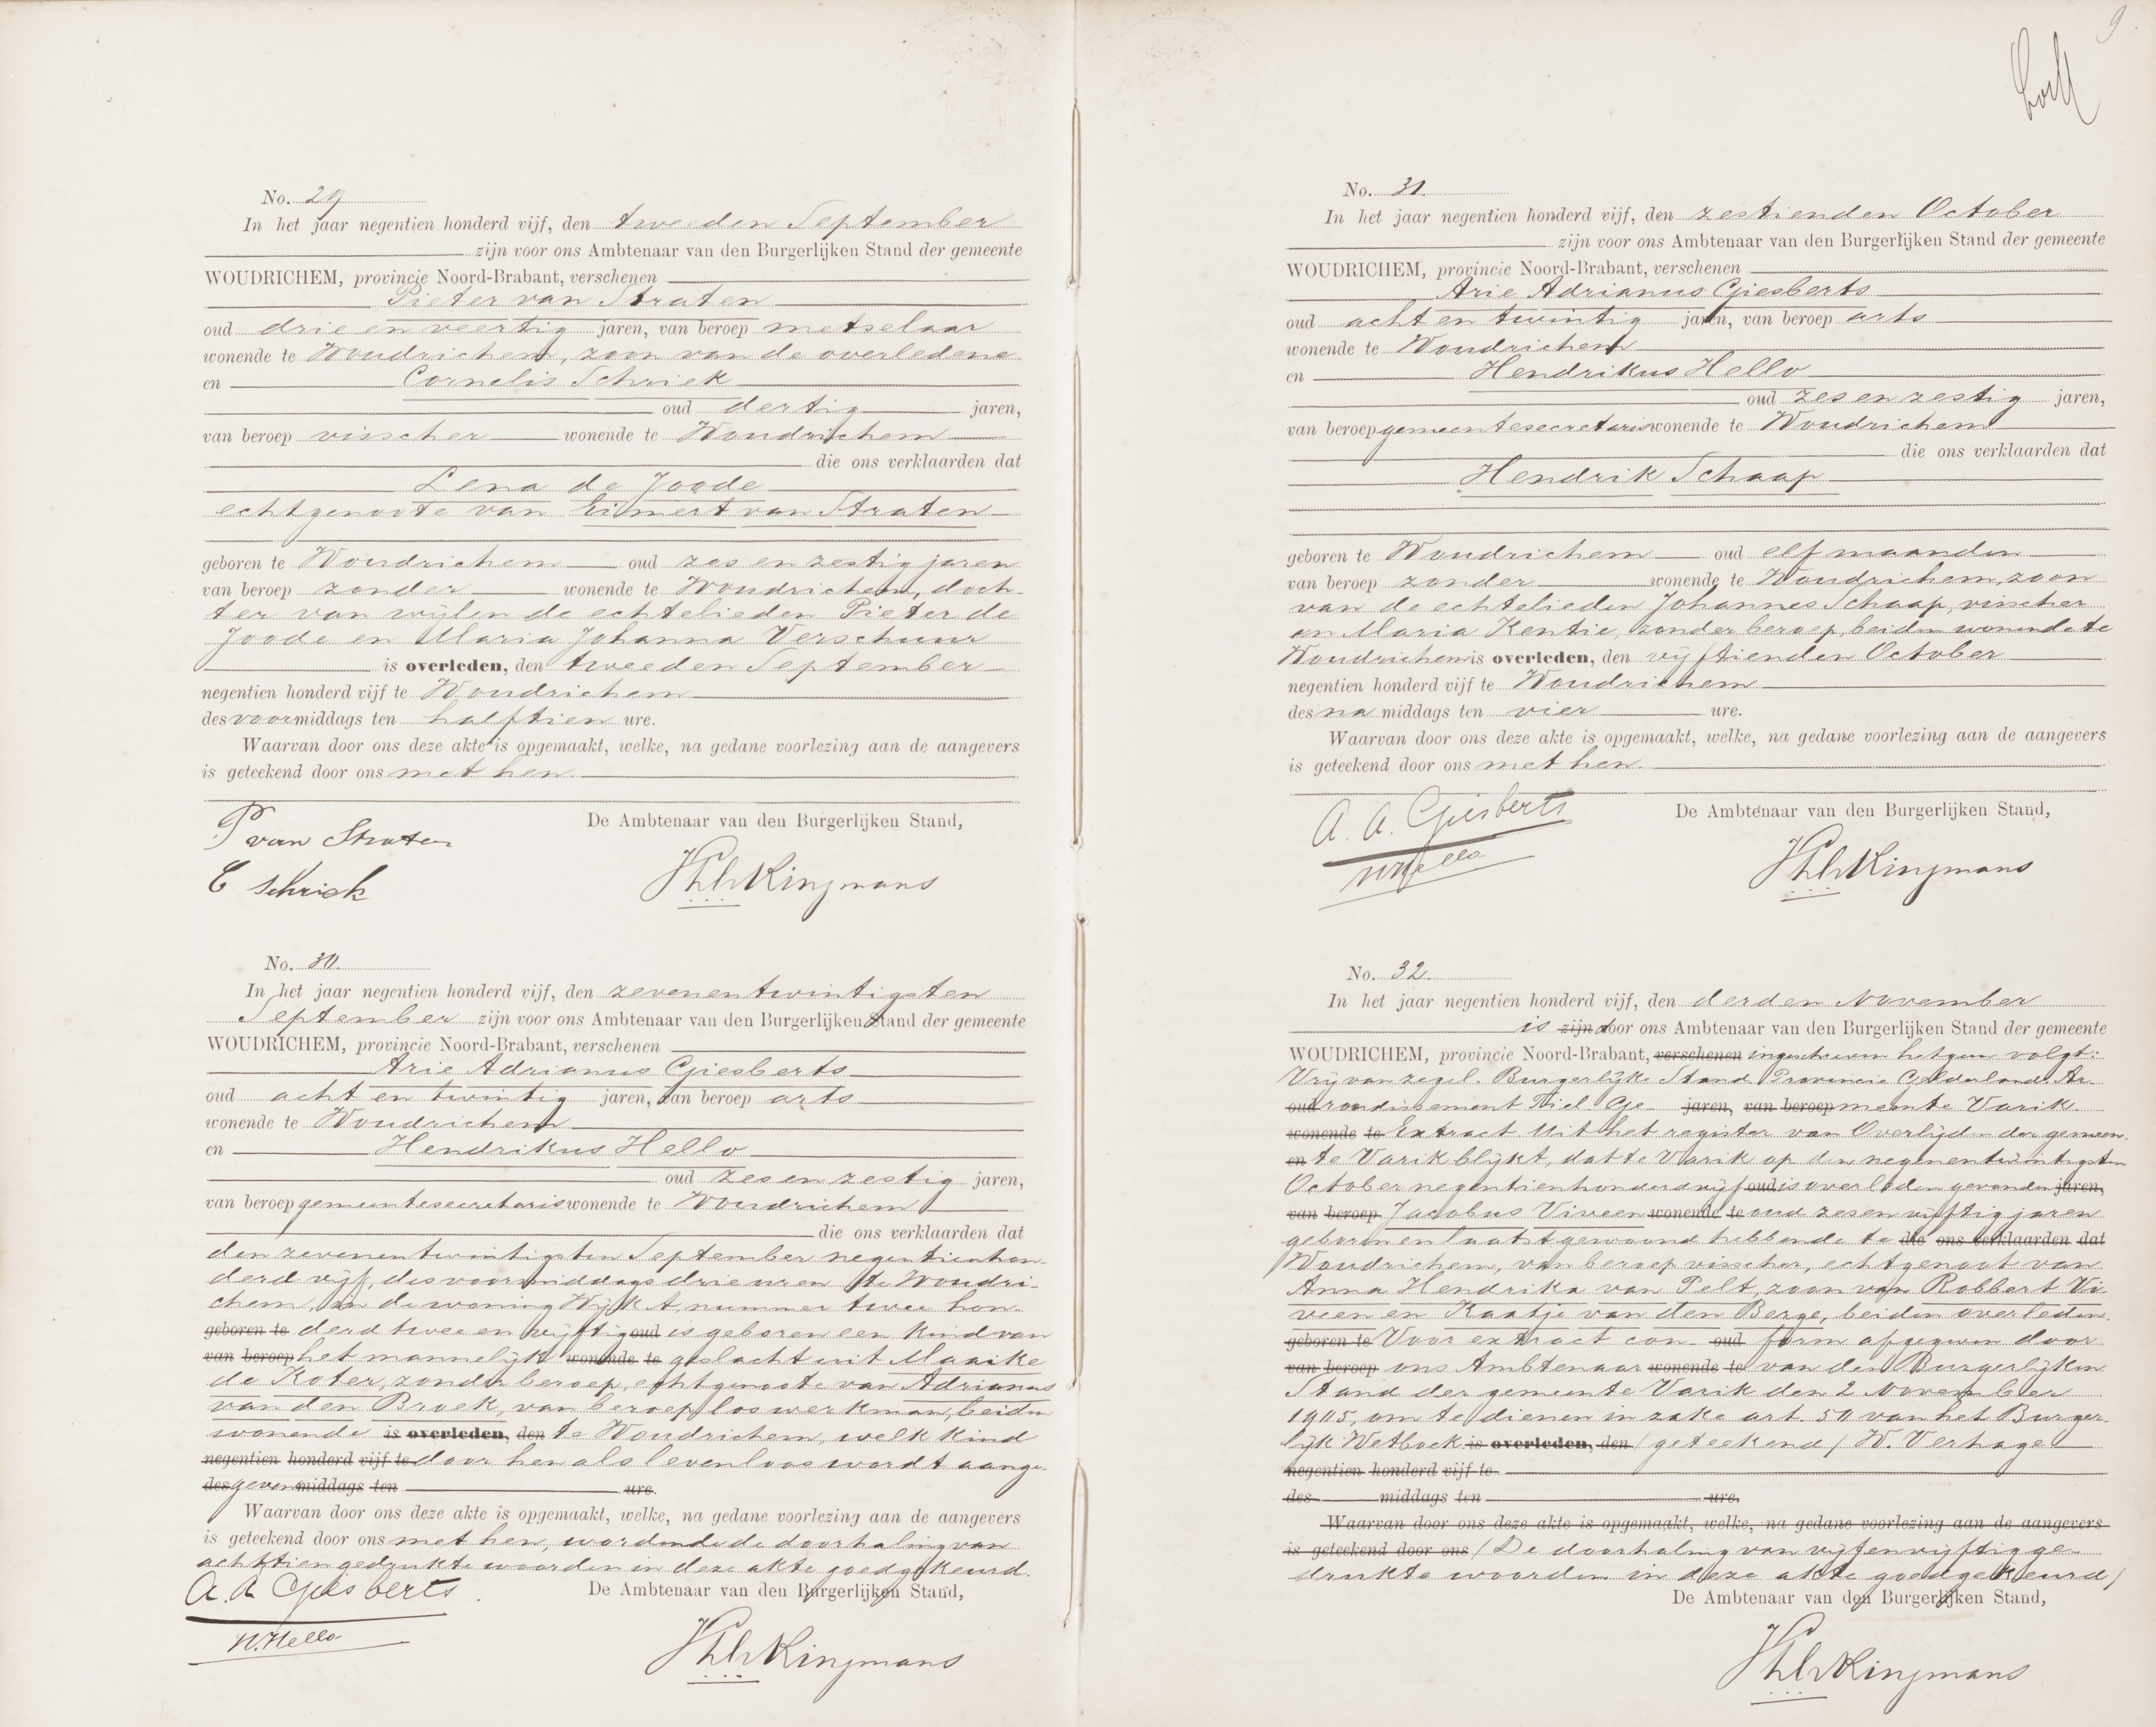 No. 29
In het jaar negentien honderd vijf, den tweeden September
zijn voor ons Ambtenaar van den Burgerlijken Stand der gemeente
WOUDRICHEM, provincie Noord-Brabant, verschenen
Pieter van Straten
oud drie en veertig jaren, van beroep metselaar
wonende te Woudrichem, zoon van de overledene
en Cornelis Schriek
oud dertig jaren,
van beroep visscher wonende te Woudrichem
die ons verklaarden dat
Lena de Joode
echtgenoote van Eimert van Straten
geboren te Woudrichem oud zes en zestig jaren
van beroep zonder wonende te Woudrichem, doch-
ter van wijlen de echtelieden Pieter de
Joode en Maria Johanna Verschuur
is overleden, den tweeden September
negentien honderd vijf te Woudrichem
des voormiddags ten half tien ure.
Waarvan door ons deze akte is opgemaakt, welke, na gedane voorlezing aan de aangevers
is geteekend door ons met hen.
De Ambtenaar van den Burgerlijken Stand,
P van Straten
C Schriek
Kingmans
No. 30.
In het jaar negentien honderd vijf, den zevenentwintigsten
September zijn voor ons Ambtenaar van den Burgerlijken Stand der gemeente
WOUDRICHEM, provincie Noord-Brabant, verschenen
Arie Adrianus Giesberts
oud acht en twintig jaren, van beroep arts
wonende te Woudrichem
en Hendrikus Hello
oud zes en zestig jaren,
van beroep gemeentesecretaris wonende te Woudrichem
die ons verklaarden dat
den zevenentwintigsten September negentienhon-
derd vijf, des voormiddags drie uren te Woudri-
chem, in de woning Wijk A, nummer twee hon-
geboren te derd twee en vijftig oud is geboren een kind van
van beroep het mannelijk wonende te geslacht uit Maaike
de Koter, zonder beroep, echtgenoote van Adrianus
van den Broek, van beroep los werkman, beiden
wonende is overleden, den te Woudrichem, welk kind
negentien honderd vijf te door hen als levenloos wordt aange-
des geven middags ten ure.
Waarvan door ons deze akte is opgemaakt, welke, na gedane voorlezing aan de aangevers
is geteekend door ons met hen, wordende de doorhaling van
achttien gedrukte woorden in deze akte goedgekeurd.
De Ambtenaar van den Burgerlijken Stand,
A. A. Giesberts
H. Hello
Kingmans
9
No. 31.
In het jaar negentien honderd vijf, den zestienden October
zijn voor ons Ambtenaar van den Burgerlijken Stand der gemeente
WOUDRICHEM, provincie Noord-Brabant, verschenen
Arie Adrianus Giesberts
oud acht en twintig jaren, van beroep arts
wonende te Woudrichem
en Hendrikus Hello
oud zes en zestig jaren,
van beroep gemeentesecretaris wonende te Woudrichem
die ons verklaarden dat
Hendrik Schaap
geboren te Woudrichem oud elf maanden
van beroep zonder wonende te Woudrichem, zoon
van de echtelieden Johannes Schaap, visscher
en Maria Kentie, zonder beroep, beiden wonende te
Woudrichem is overleden, den vijftienden October
negentien honderd vijf te Woudrichem
des na middags ten vier ure.
Waarvan door ons deze akte is opgemaakt, welke, na gedane voorlezing aan de aangevers
is geteekend door ons met hen.
De Ambtenaar van den Burgerlijken Stand,
A. A. Giesberts
H Hello
Kingmans
No. 32.
In het jaar negentien honderd vijf, den derden November
is zijn door ons Ambtenaar van den Burgerlijken Stand der gemeente
WOUDRICHEM, provincie Noord-Brabant, verschenen ingeschreven hetgeen volgt:
Vrij van zegel. Burgerlijke Stand Provincie Gelderland. Ar-
oud rondissement Tiel. Ge- jaren, van beroep meente Varik.
wonende te Extract. Uit het register van Overlijden der gemeen-
en te Varik blijkt, dat te Varik op den negenentwintigsten
October negentienhonderdvijf oud is overleden gevonden jaren,
van beroep Jacobus Viveen wonende te oud zesenvijftig jaren
geboren en laatst gewoond hebbende te die ons verklaarden dat
Woudrichem, van beroep visscher, echtgenoot van
Anna Hendrika van Pelt, zoon van Robbert Vi-
veen en Kaatje van den Berge, beiden overleden.
geboren te Voor extract con- oud form afgegeven door
van beroep ons Ambtenaar wonende te van den Burgerlijken
Stand der gemeente Varik den 2 November
1905, om te dienen in zake art. 50 van het Burger-
lijk Wetboek is overleden, den (geteekend) W. Verhage
negentien honderd vijf te
des middags ten ure.
Waarvan door ons deze akte is opgemaakt, welke, na gedane voorlezing aan de aangevers
is geteekend door ons (De doorhaling van vijfenvijftig ge-
drukte woorden in deze akte goedgekeurd)
De Ambtenaar van den Burgerlijken Stand,
Kingmans